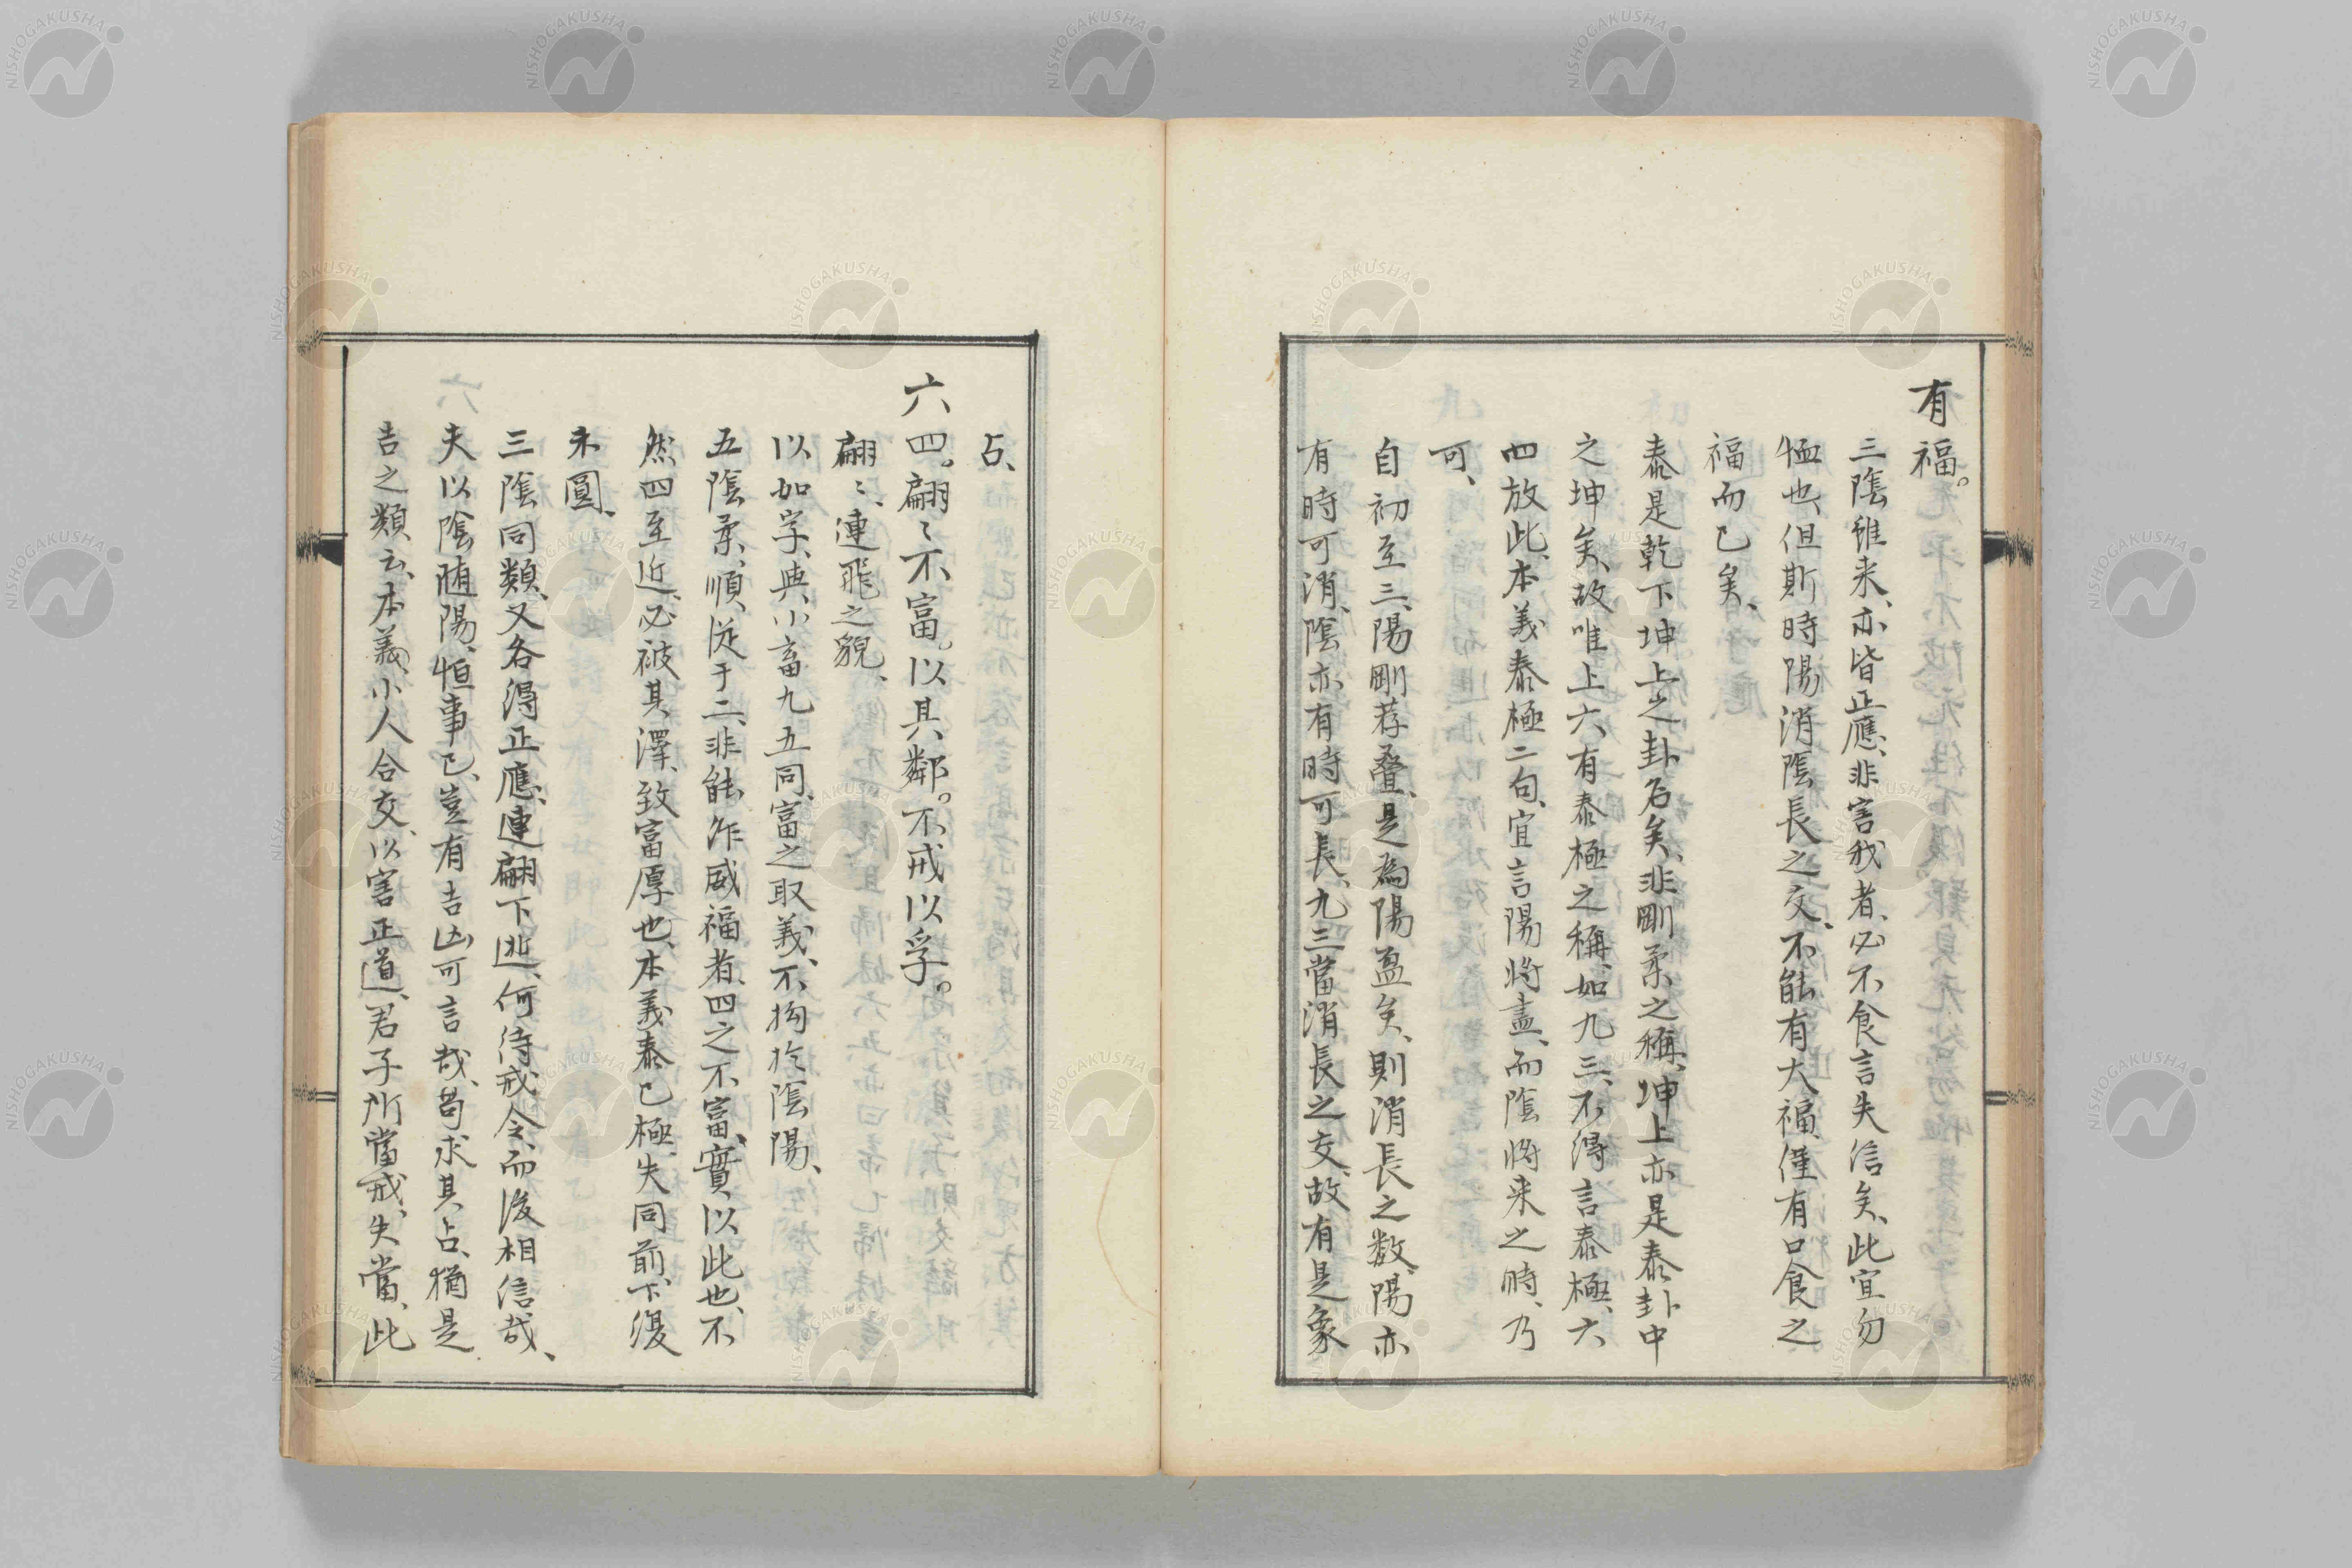 有福。
三陰雖来、亦皆正應、非害我者、必不食言失信矣、此宜勿
恤也、但斯時陽消陰長之交、不能有大福、僅有口食之
福而已矣、
泰是乾下坤上之卦名矣、非剛柔之稱、坤上亦是泰卦中
之坤矣、故唯上六、有泰極之稱、如九三、不得言泰極、六
四放此、本義泰極二句、宜言陽將盡、而陰將来之時、乃
可、
自初至三、陽剛荐疊、是為陽盈矣、則消長之数、陽亦
有時可消、陰亦有時可長、九三當消長之交、故有是象
占、
六四。翩〻不富。以其鄰。不戒以孚。
翩〻、連飛之貌、
以如字、與小畜九五同、富之取義、不拘於陰陽、
五陰柔、順従于二、非能作威福者、四之不富、實以此也、不
然四至近、必被其澤、致富厚也、本義泰已極、失同前、下復
未圓、
三陰同類、又各得正應、連翩下逃、何待戒令、而後相信哉、
夫以陰随陽、恒事已、豈有吉凶可言哉、苟求其占、猶是
吉之類云、本義、小人合交、以害正道、君子所當戒、失當、此